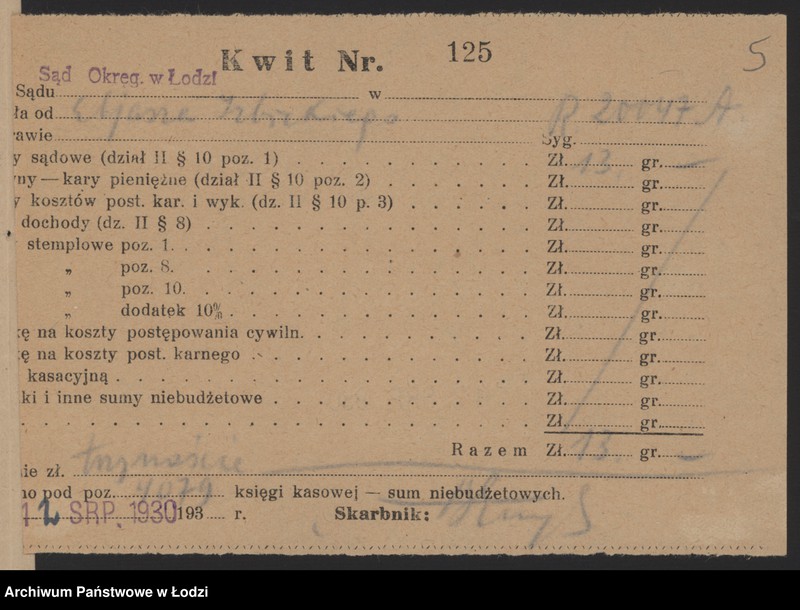 Kwit Nr. 125 5
Sąd Okreg. w Łodzi
Sądu w
ła od Eljasza
rawie Syg. B 20047 A
y sądowe (dział II § 10 poz. 1) Zł. 13 gr. —
yny — kary pieniężne (dział II § 10 poz. 2) Zł. gr.
y kosztów post. kar. i wyk. (dz. II § 10 p. 3) Zł. gr.
dochody (dz. II § 8) Zł. gr.
stemplowe poz. 1. Zł. gr.
„ poz. 8. Zł. gr.
„ poz. 10. Zł. gr.
„ dodatek 10% Zł. gr.
kę na koszty postępowania cywiln. Zł. gr.
kę na koszty post. karnego Zł. gr.
kasacyjną Zł. gr.
ki i inne sumy niebudżetowe Zł. gr.
Zł. gr.
Razem Zł. 13 gr. —
ie zł. trzynaście
no pod poz. 4079 księgi kasowej — sum niebudżetowych.
SRP. 1930 193 r. Skarbnik:
Archiwum Państwowe w Łodzi